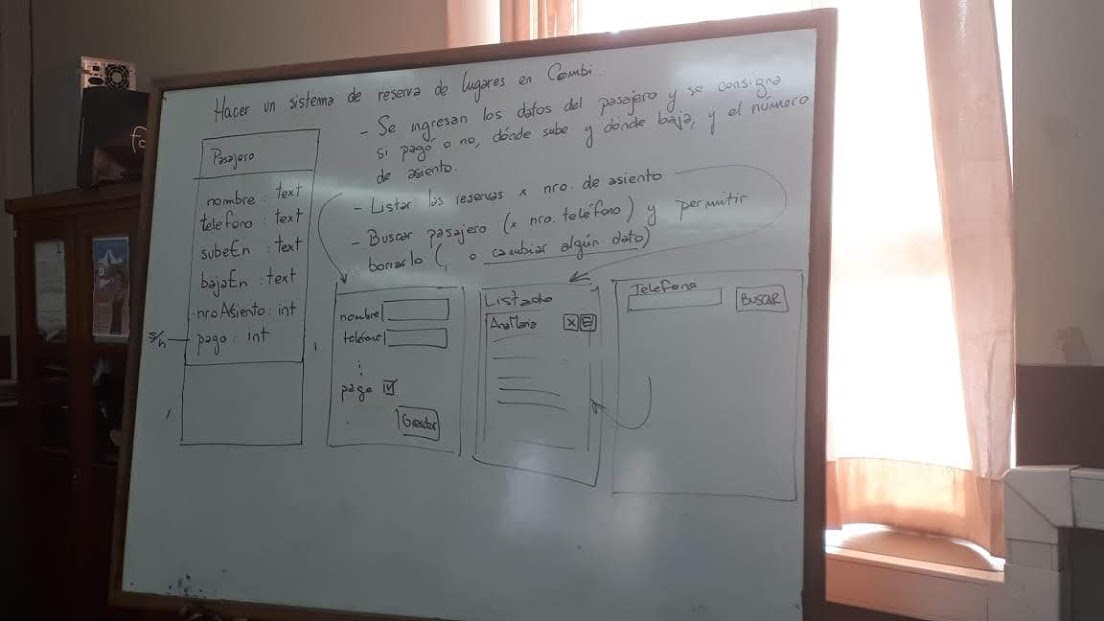 Hacer un sistema de reserva de lugares en Combi.
- Se ingresan los datos del pasajero y se consigna
si pagó o no, dónde sube y dónde baja, y el número
de asiento.
- Listar las reservas x nro. de asiento
- Buscar pasajero (x nro. teléfono) y permitir
borrarlo (, o cambiar algún dato)
Pasajero
nombre : text
telefono : text
subeEn : text
bajaEn : text
nroAsiento : int
s/n
pago : int
nombre
telefono
pago
Listado
AnaMaria
X
Telefono
BUSCAR